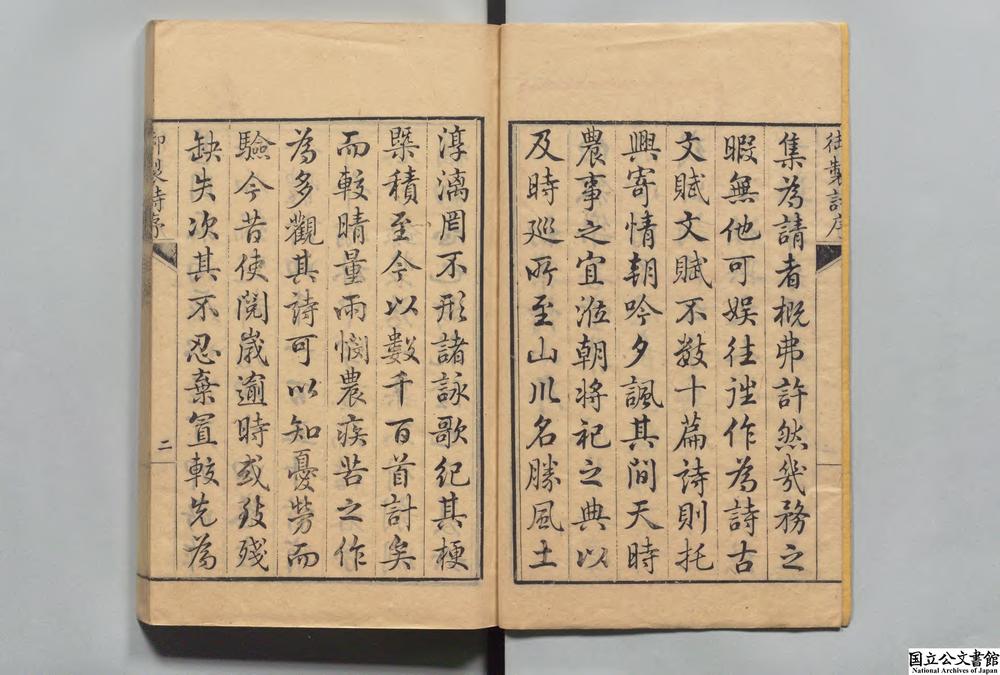 御製詩序
集為請者概弗許然幾務之
暇無他可娱往往作為詩古
文賦文賦不數十篇詩則托
興寄情朝吟夕諷其間天時
農事之宜涖朝将祀之典以
及時廵所至山川名勝風土
淳漓罔不形諸詠歌紀其梗
槩積至今以數千百首計矣
而較晴量雨憫農疾苦之作
為多觀其詩可以知憂勞而
驗今昔使閲嵗逾時或致殘
缺失次其不忍棄置較先為
御製詩序
二
国立公文書館
National Archives of Japan